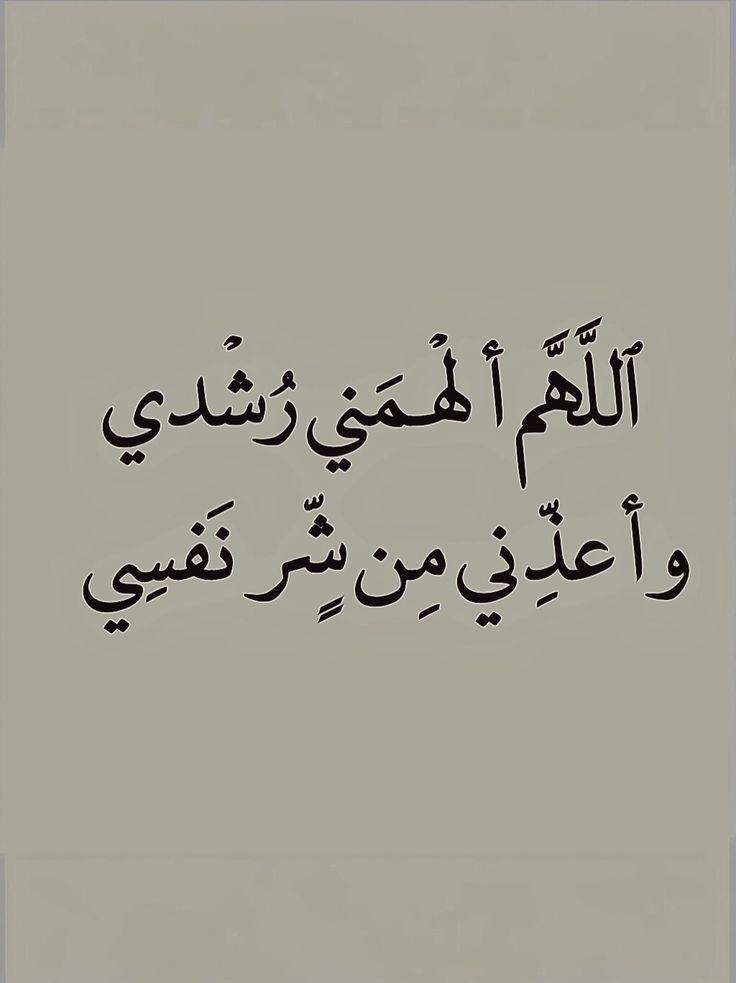 ٱللَّهَّم ألْهمَني رُشْدي
وأعذِّني مِن شٍّر نَفسِي